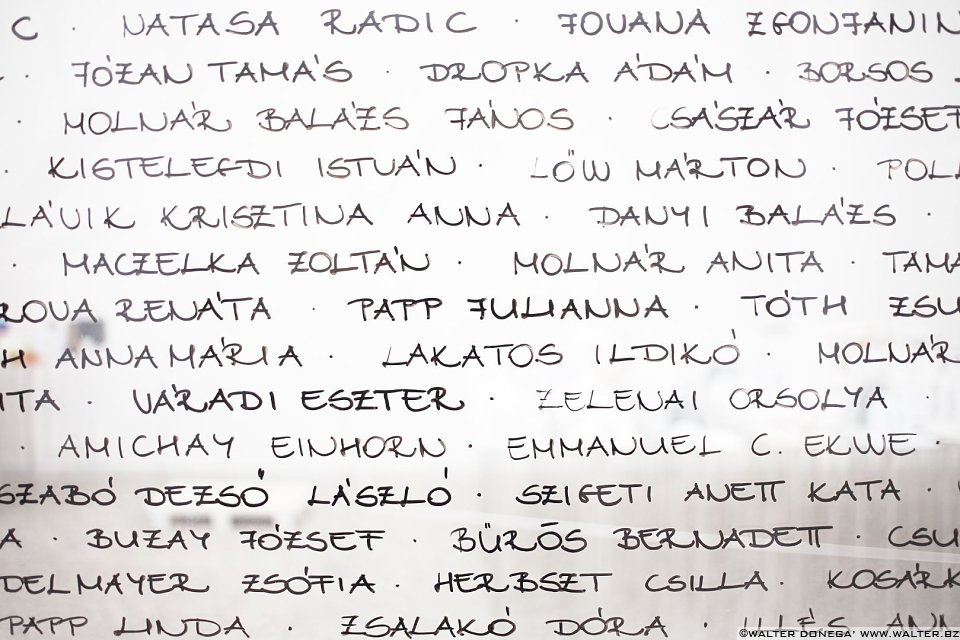 C · NATASA RADIC · JOVANA ZGONJANIN
· JÓZAN TAMÁS · DROPKA ÁDÁM · BORSOS
· MOLNÁR BALÁZS JÁNOS · CSÁSZÁR JÓZSEF
· KISTELEGDI ISTVÁN · LŐW MÁRTON · POLL
LÁVIK KRISZTINA ANNA · DANYI BALÁZS ·
· MACZELKA ZOLTÁN · MOLNÁR ANITA · TAMÁ
ROVA RENÁTA · PAPP JULIANNA · TÓTH ZSU
H ANNAMÁRIA · LAKATOS ILDIKÓ · MOLNÁR
ITA · VÁRADI ESZTER · ZELENAI ORSOLYA ·
· AMICHAY EINHORN · EMMANUEL C. EKWE ·
SZABÓ DEZSŐ LÁSZLÓ · SZIGETI ANETT KATA ·
A · BUZAY JÓZSEF · BŰRÖS BERNADETT · CSU
DELMAYER ZSÓFIA · HERBSZT CSILLA · KOSÁRK
PAPP LINDA · ZSALAKÓ DÓRA · ILLÉS ANN
©WALTER DONEGA' WWW.WALTER.BZ